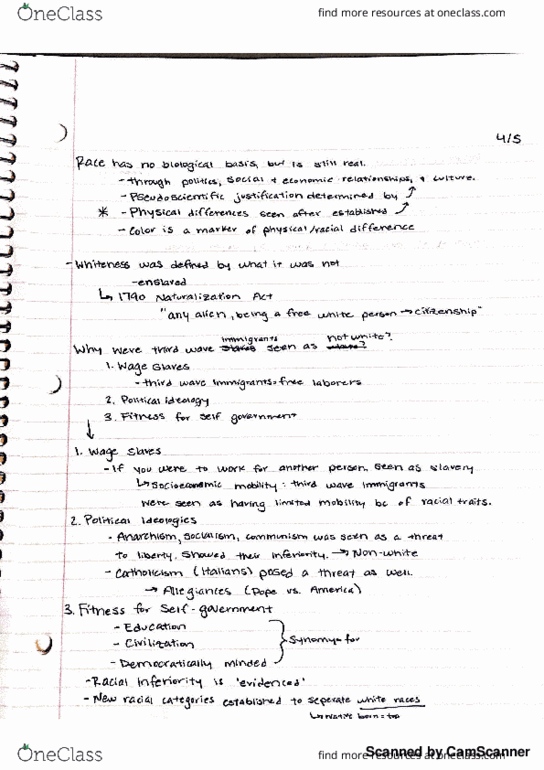 OneClass
find more resources at oneclass.com
4/5
Race has no biological basis, but is still real.
- through politics, social + economic relationships, + culture.
- Pseudoscientific justification determined by
* - Physical differences seen after established
- Color is a marker of physical/racial difference
- Whiteness was defined by what it was not
- enslaved
↳ 1790 Naturalization Act
"any alien, being a free white person → citizenship"
immigrants not white?
Why were third wave slaves seen as slaves?
1. Wage Slaves
- third wave immigrants = free laborers
2. Political ideology
3. Fitness for self government
1. Wage Slaves
- If you were to work for another person, seen as slavery
↳ Socioeconomic mobility: third wave immigrants
were seen as having limited mobility bc of racial traits.
2. Political Ideologies
- Anarchism, socialism, communism was seen as a threat
to liberty. Showed their inferiority. → Non-white
- Catholicism (Italians) posed a threat as well.
→ Allegiances (Pope vs. America)
3. Fitness for Self-government
- Education
- Civilization
- Democratically minded
- Racial Inferiority is 'evidenced'
- New racial categories established to seperate white races
↳ Native born = top
OneClass
find more resources at oneclass.com
Scanned by CamScanner